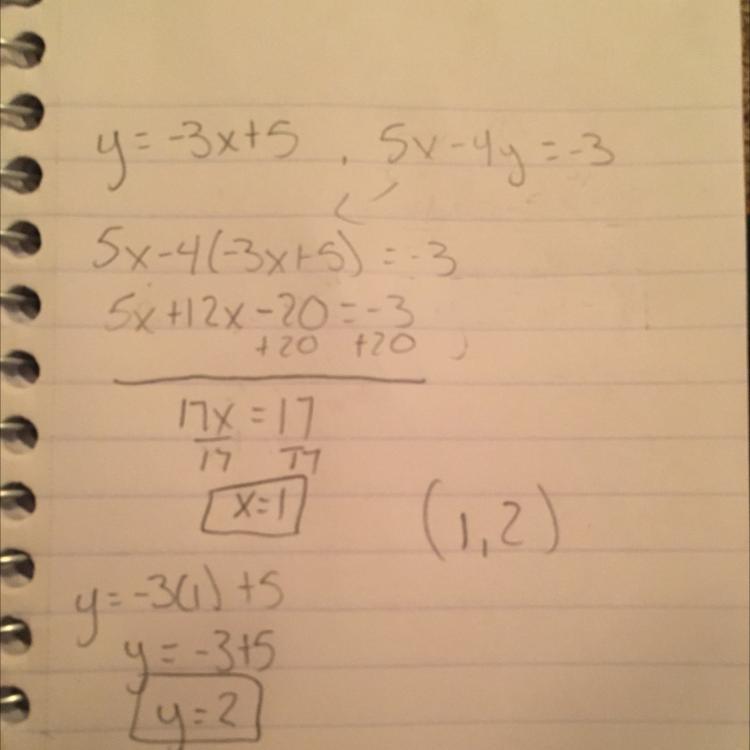 y = -3x+5 , 5x-4y = -3
5x-4(-3x+5) = -3
5x+12x-20 = -3
+20 +20
17x = 17
17 17
x=1
(1,2)
y = -3(1) +5
y = -3+5
y = 2